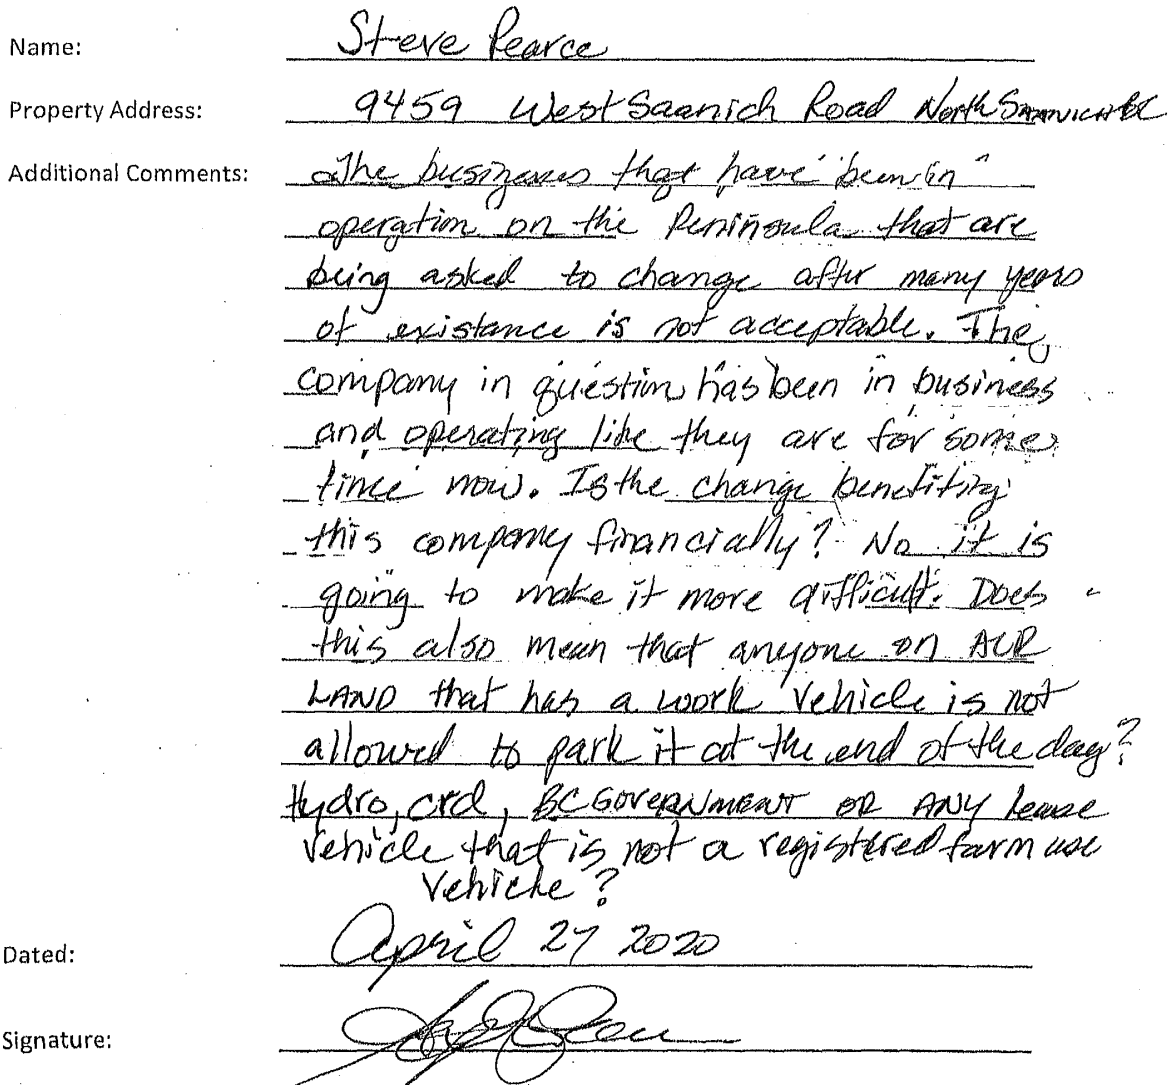 Name: Steve Pearce
Property Address: 9459 West Saanich Road North Saanich BC
Additional Comments: The businesses that have been in
operation on the Peninsula that are
being asked to change after many years
of existance is not acceptable. The
company in question has been in business
and operating like they are for some
time now. Is the change benefiting
this company financially? No it is
going to make it more difficult. Does
this also mean that anyone on ALR
LAND that has a work vehicle is not
allowed to park it at the end of the day?
Hydro, crd, BC GOVERNMENT OR ANY lease
vehicle that is not a registered farm use
vehicle?
Dated: April 27 2020
Signature: